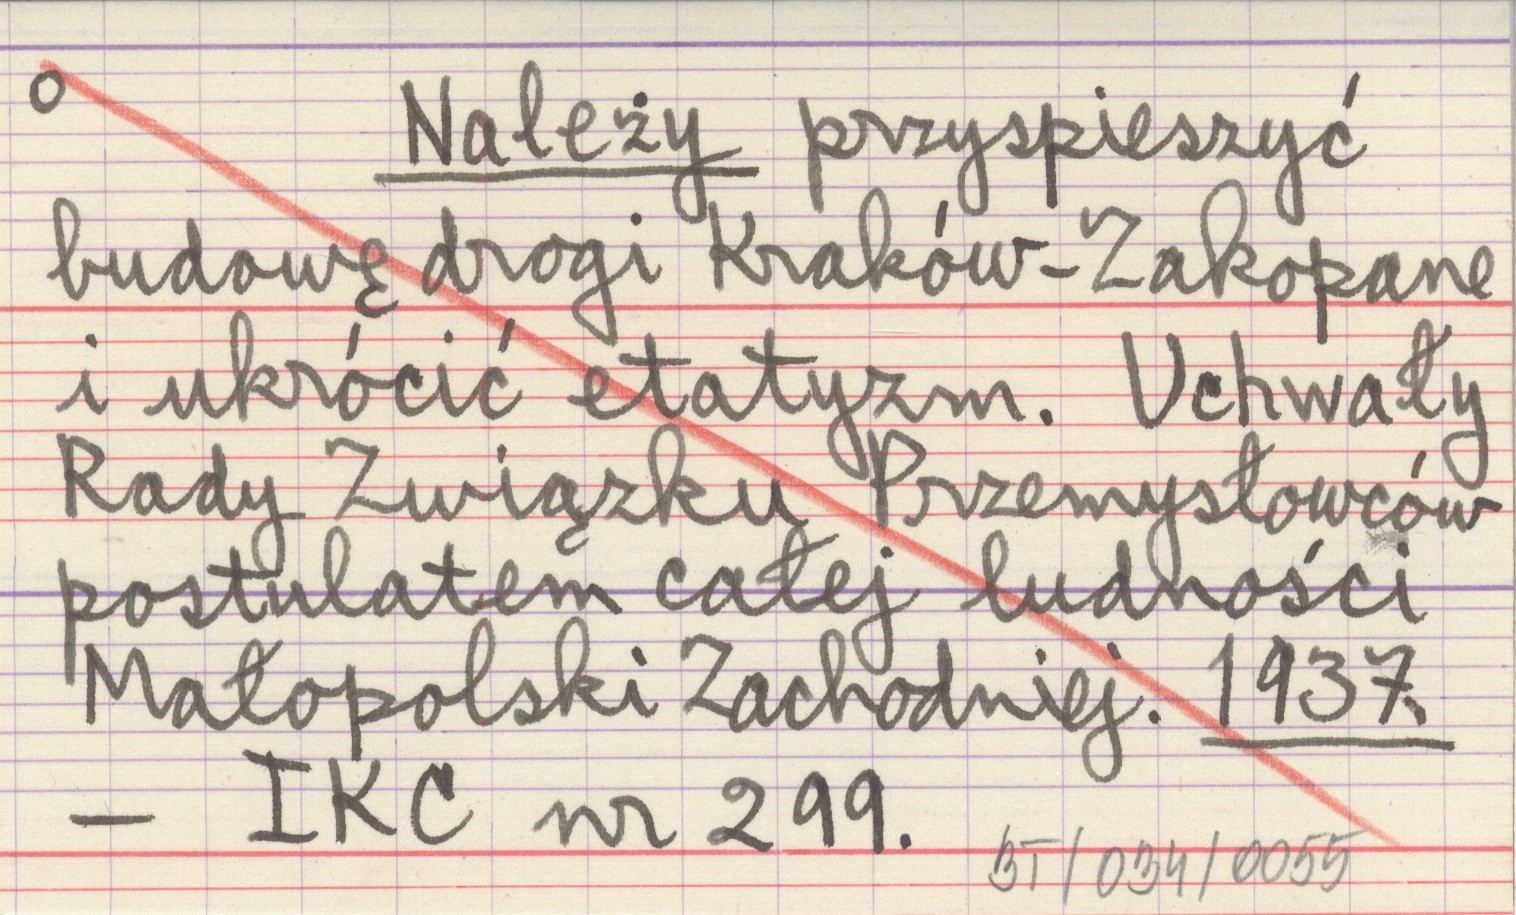 o Należy przyspieszyć
budowę drogi Kraków-Zakopane
i ukrócić etatyzm. Uchwały
Rady Związku Przemysłowców
postulatem całej ludności
Małopolski Zachodniej. 1937.
— IKC nr 299.
BT/034/0055